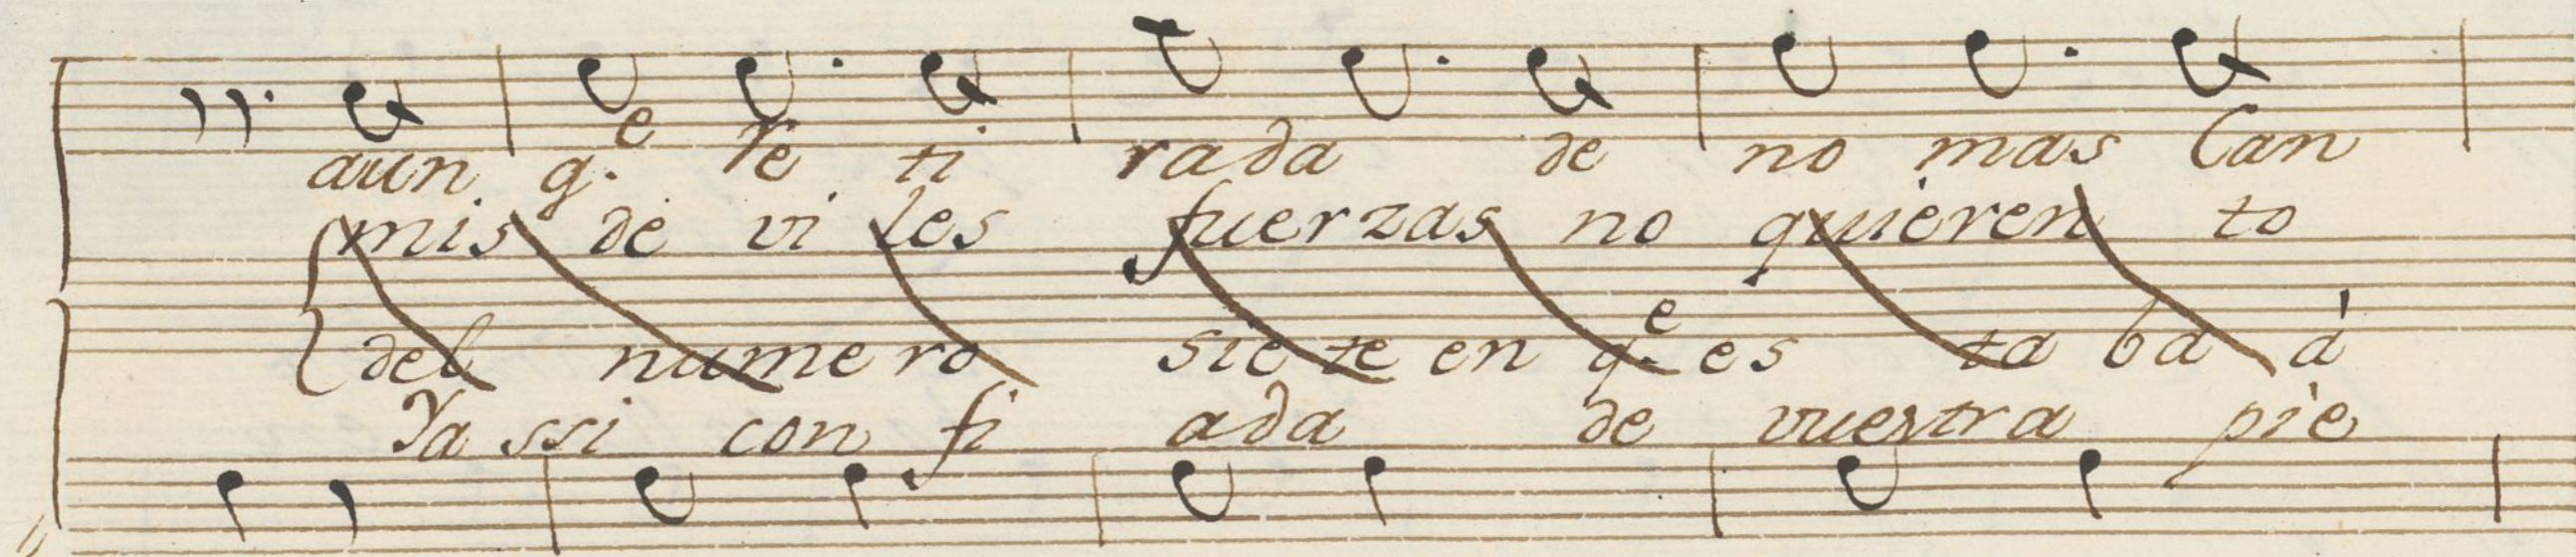 aun q.e Re ti rada de no mas Can
mis de vi les fuerzas no quieren to
del nume ro sie te en q.e es ta ba à
Ya ssi con fi ada de vuestra pie